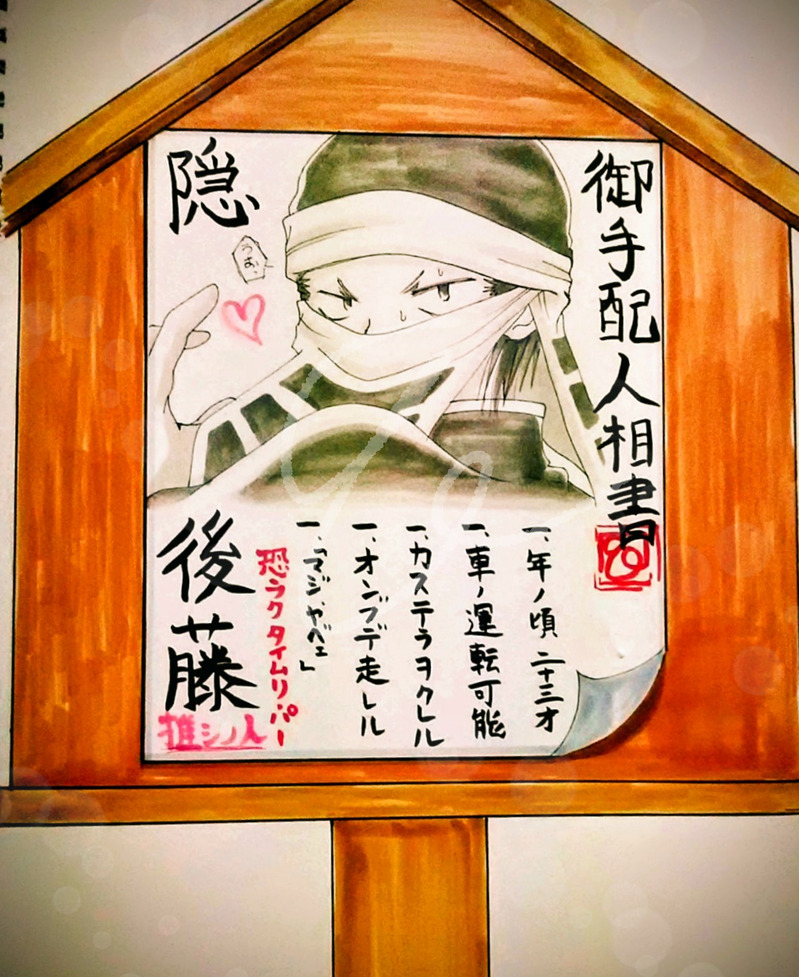 御手配人相書
隠
うぉ…
一、年ノ頃 二十三才
一、車ノ運転可能
一、カステラヲクレル
一、オンブデ走レル
一、「マジやべェ」
恐ラクタイムリーパー
後藤
推シノ人